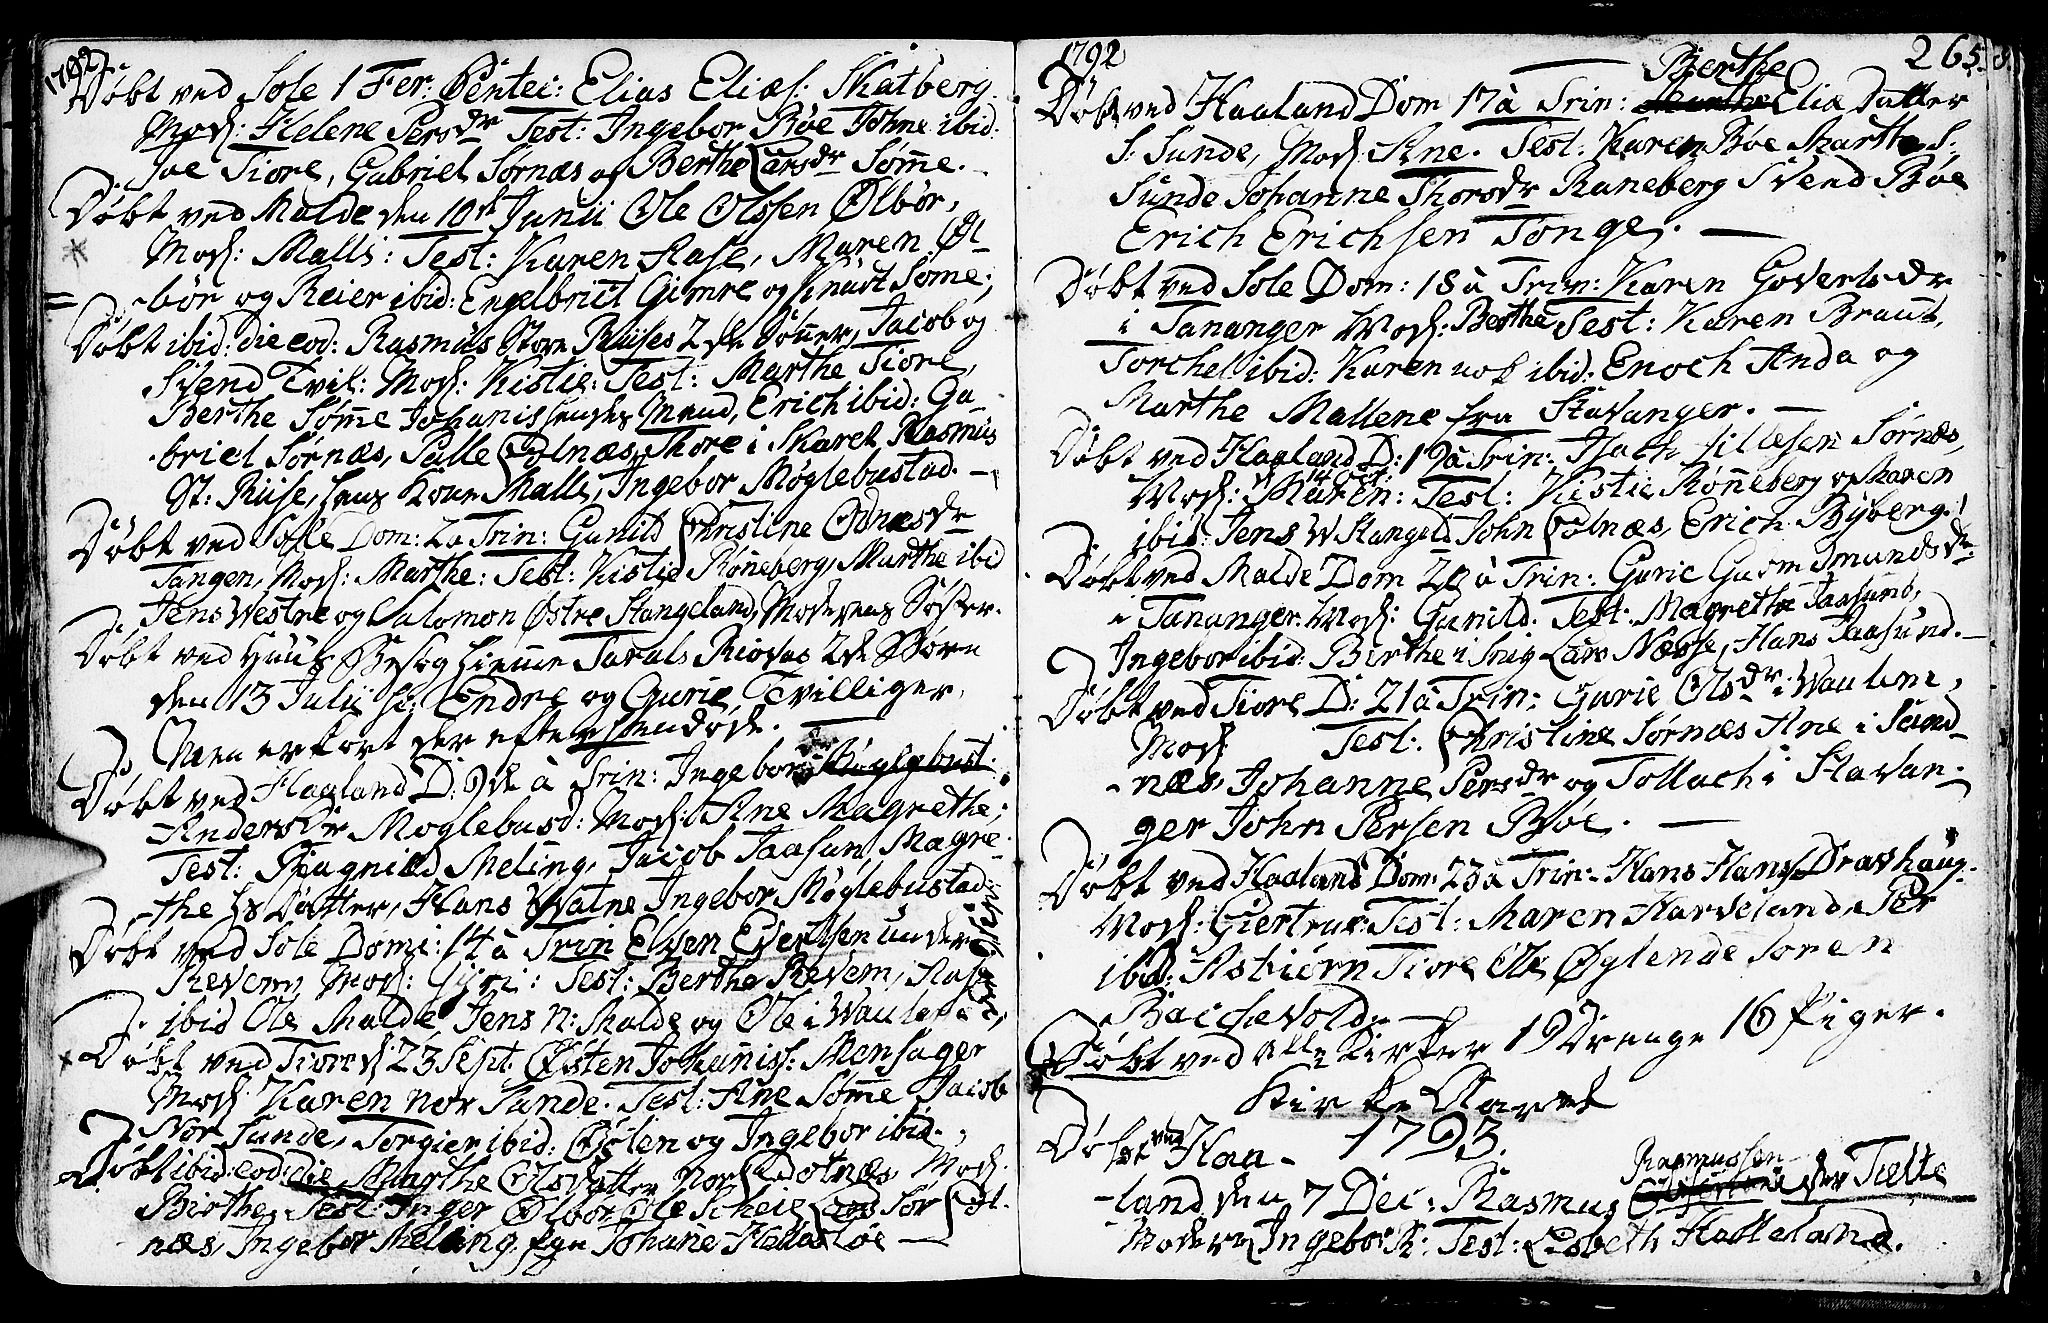 1792
Døbt ved Sole 1 Fer: Pentec: Elias Eliæs: Skatberg.
Mod: Helene Persdr Test: Ingebor Bøe Johne ibid:
Joe Tiore, Gabriel Sørnæs og Berthe Larsdr Søm̄e.
Døbt ved Malde den 10de Junii Ole Olssen Ølbør,
Mod: Malli: Test: Karen Aase, Maren Øl-
bør og Reier ibid: Engelbrict Gimre og Knudt Søme;
Døbt ibid: die eod: Rasmus Store Riises 2de Sønner, Jacob og
Svend Tvil: Mod: Kistie: Test: Marthe Tiore,
Berthe Søm̄e Johanis hendes Mand, Erich ibid: Ga-
briel Sørnæs, Palle Solnæs, Thore i Skaret Rasmus
St: Riise, hans Kone Malli, Ingebor Møglebustad.
Døbt ved Sole Dom: 2 a Trin: Gunild Christine Odnæsdr
Tangen, Mod: Marthe: Test: Kistie Røneberg, Marthe ibid
Jens Westre og Salomon Østre Stangeland, Moderens Søster.
Døbt ved Huus Besøg hiemme Taralds Risdas 2de Børn
den 13 Julii sc: Endre og Gurie Tvilliger,
Men er kort der efter hendøde.
Døbt ved Haaland D: 9de à Trin: Ingebor Møglebust:
Andersdr Moglebusd: Mod: Ane Magrethe;
Test: Ragnild Meling, Jacob Jaasun, Magre-
the hs Datter, Hans Watne Ingebor Møglebustad:
Døbt ved Sole Domi: 14 à Trin Elven Evertsen under
Revem Mod: Gyri: Test: Berthe Revem, Aase
ibid Ole Malde, Jens N: Malde og Ole i Waulen
Døbt ved Tiore d 23 Sept. Østen Johanis: Mensager
Mod: Karen nor Sunde. Test: Ane Søm̄e Jacob
Nor Sunde, Torgier ibid: Østen og Ingebor ibid.
Døbt ibid: eod: die Marthe Olsdatter Nor Solnæs, Mod:
Birthe, Test: Inger Ølbør Ole Scheie Lod Sør Sol-
næs, Ingebor Meling, pge Johane Hellestøe
1792
265.
Berthe
Døbt ved Haaland Dom 17 à Trin: Marthe Eliæ Datter
S: Sunde, Mod: Ane. Test: Karen Bøe Marthe S:
Sunde Johanne Thorsdr Raneberg Svend Bøe
Erich Erichsen Tonge.
Døbt ved Sole Dom: 18 à Trin: Karen Govertsdr
i Tananger Mod: Berthe Test: Karen Braut,
Torchel ibid: Karen nok ibid. Enoch Anda og
Marthe Mallene fra Stavanger.
Døbt ved Haaland D: 19 à Trin: Isach Jillesen Sørnæs,
14 Oct:
Mod: Maren: Test: Kistie Røneberg og Maren
ibid: Jens W Stangeld John Solnæs, Erich Byberg.
Døbt ved Malde Dom 20 à Trin: Gurie Gudmundsdr
i Tananger. Mod: Gunild. Test: Magrethe Jaasund,
Ingebor ibid: Berthe i Snig Lars Næsse, Hans Jaasund.
Døbt ved Tiore D: 21 à Trin: Gurie Olsdr i Waulene,
Mod: Test: Christine Sørnæs Ane i Sand-
næs, Johanne Persdr og Tollach i Stavan-
ger John Persen Bøe.
Døbt ved Haaland Dom: 23 à Trin: Hans Hans: Dravhaug.
Mod: Giertrue: Test: Maren Harveland, Per
ibid: Asbiørn Tiore Ole Øglende Soren
Baishevold.
Døbt ved alle Kirker 19 Drenge 16 Piger.
Kirke Aaret
1793.
Døbt ved Haa-
land den 7 Dec: Rasmus Rasmussen der Tielte
Moderen Ingebor R: Test: Lisbeth Hatteland.